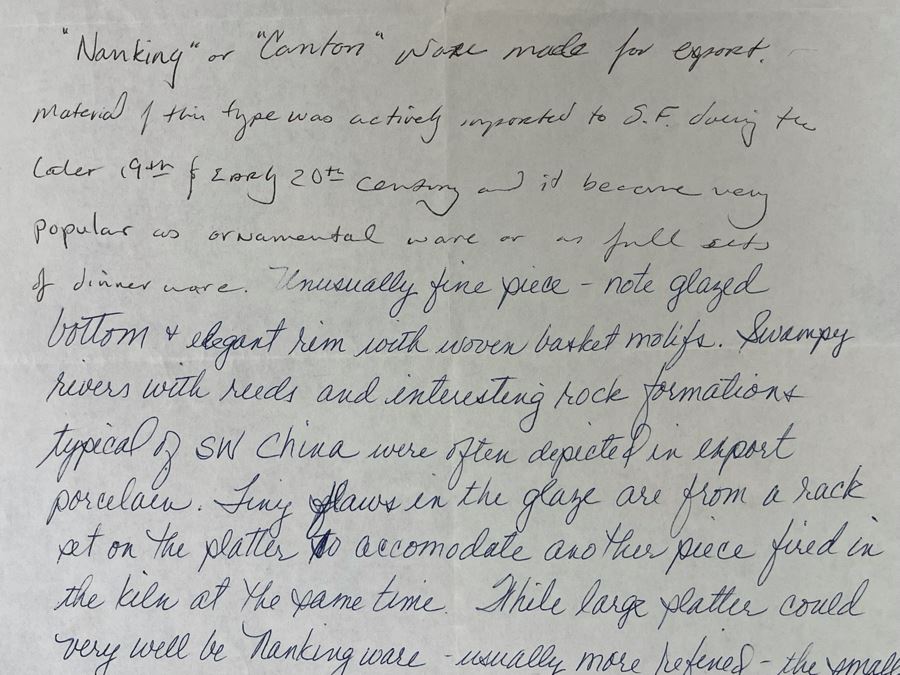 "Nanking" or "Canton" ware made for export.
material of this type was actively imported to S.F. during the
later 19th & Early 20th century and it became very
popular as ornamental ware or as full sets
of dinner ware. Unusually fine piece - note glazed
bottom + elegant rim with woven basket motifs. Swampy
rivers with reeds and interesting rock formations
typical of SW China were often depicted in export
porcelain. Tiny flaws in the glaze are from a rack
set on the platter to accomodate another piece fired in
the kiln at the same time. While large platter could
very well be Nanking ware - usually more refined - the small